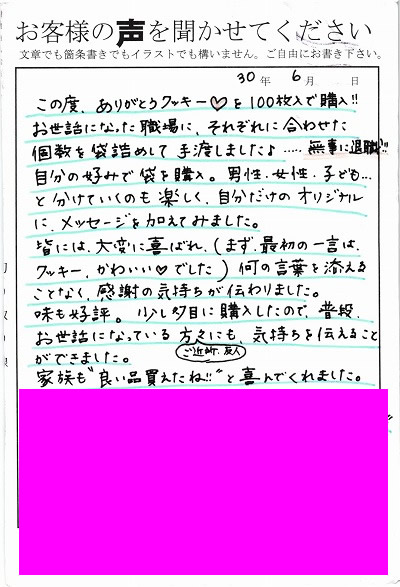 お客様の声を聞かせてください
文章でも箇条書きでもイラストでも構いません。ご自由にお書き下さい。
30年 6月 日
この度、ありがとうクッキー♡を100枚入で購入!!
お世話になった職場に、それぞれに合わせた
個数を袋詰めして手渡しました♪……無事に退職!!
自分の好みで袋を購入。男性・女性・子ども…
と分けていくのも楽しく、自分だけのオリジナル
に、メッセージを加えてみました。
皆には、大変に喜ばれ、(まず、最初の一言は、
クッキー、かわいい♡でした)何の言葉を添える
ことなく、感謝の気持ちが伝わりました。
味も好評。少し多目に購入したので、普段、
お世話になっている方々にも、気持ちを伝えること
ができました。
ご近所、友人
家族も"良い品買えたね!!"と喜んでくれました。